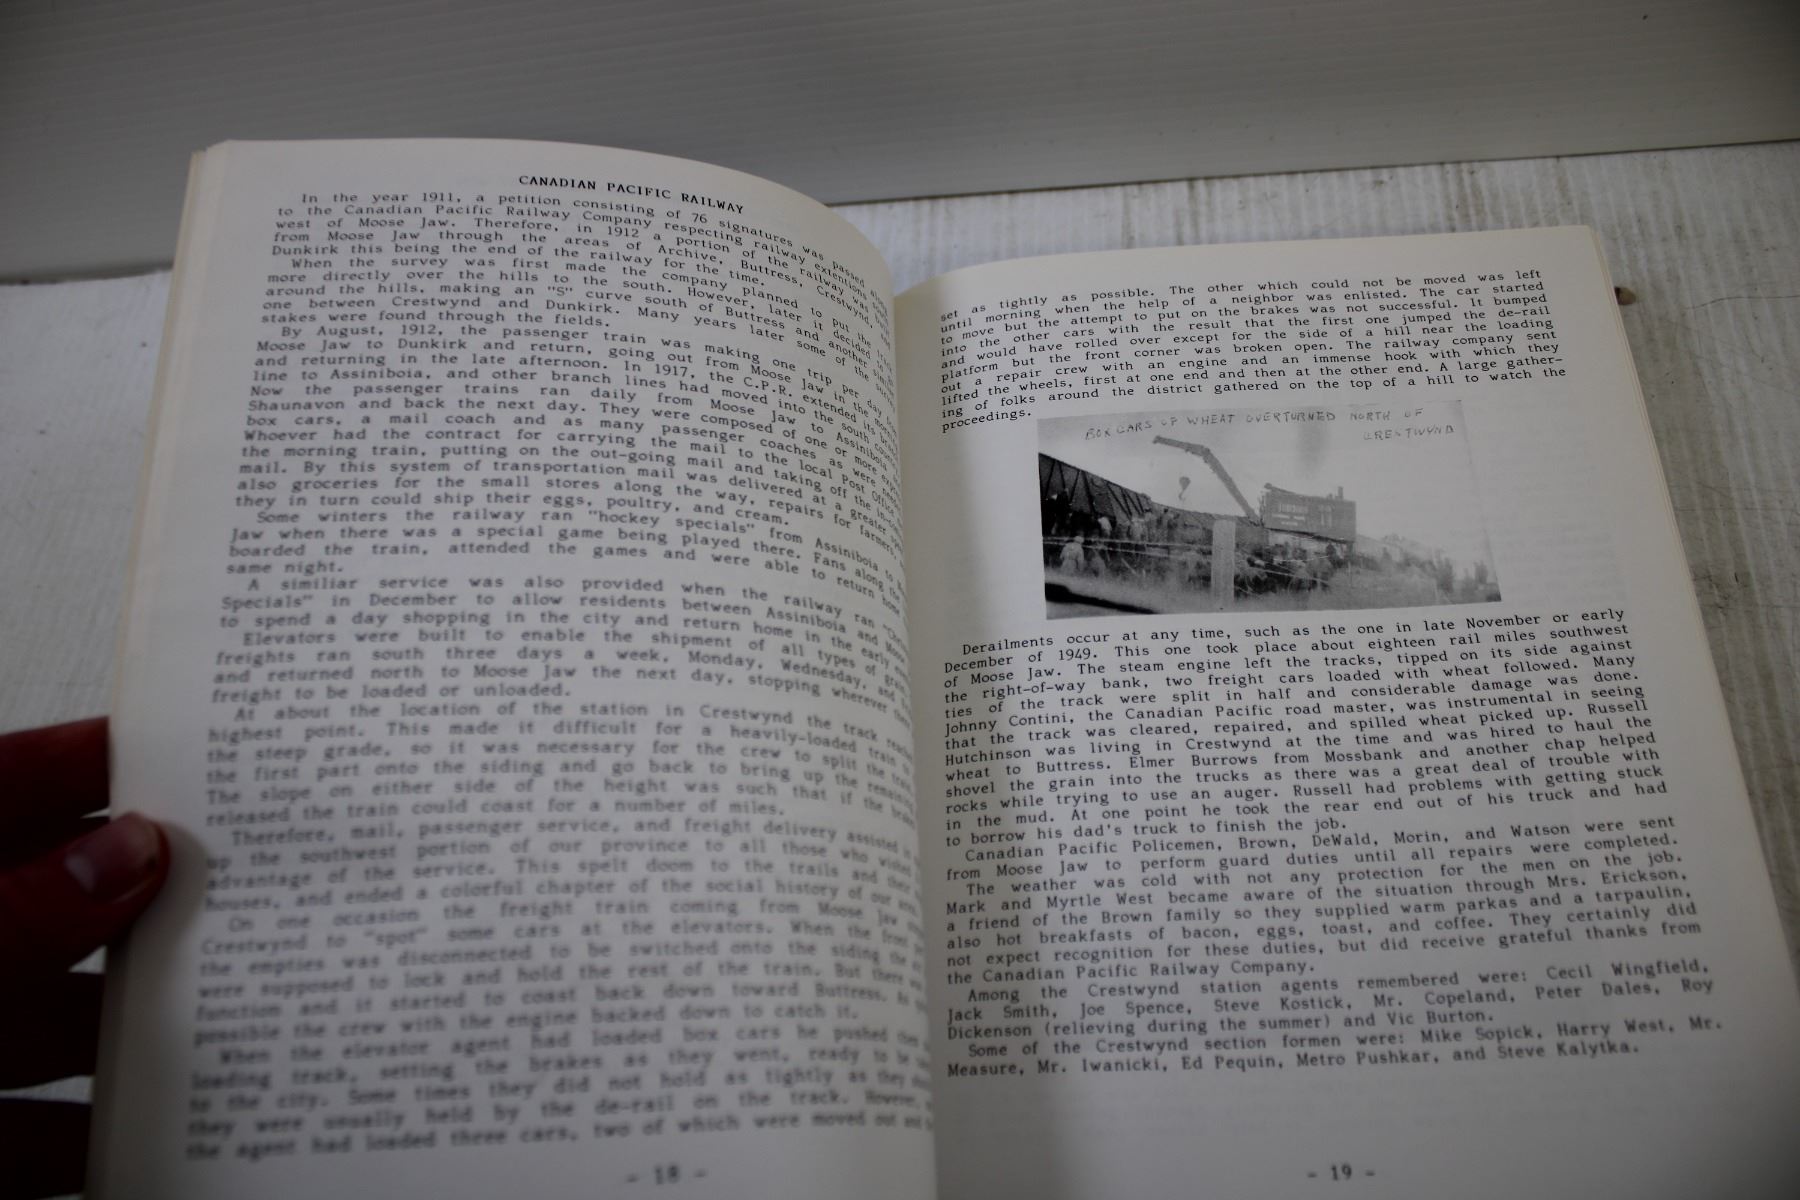 CANADIAN PACIFIC RAILWAY
In the year 1911, a petition consisting of 76 signatures was passed along
to the Canadian Pacific Railway Company respecting railway extentions
west of Moose Jaw. Therefore, in 1912 a portion of the railway was built
from Moose Jaw through the areas of Archive, Buttress, Crestwynd,
Dunkirk this being the end of the railway for the time.
When the survey was first made the company planned to put the
more directly over the hills to the south. However, later it decided to
around the hills, making an "S" curve south of Buttress and another
one between Crestwynd and Dunkirk. Many years later some of the
stakes were found through the fields.
By August, 1912, the passenger train was making one trip per day from
Moose Jaw to Dunkirk and return, going out from Moose Jaw in the
and returning in the late afternoon. In 1917, the C.P.R. extended its
line to Assiniboia, and other branch lines had moved into the south
Now the passenger trains ran daily from Moose Jaw to Assiniboia
Shaunavon and back the next day. They were composed of one or more
box cars, a mail coach and as many passenger coaches as were
Whoever had the contract for carrying the mail to the local Post Office
the morning train, putting on the out-going mail and taking off the
mail. By this system of transportation mail was delivered at a greater
also groceries for the small stores along the way, repairs for farmers,
they in turn could ship their eggs, poultry, and cream.
Some winters the railway ran "hockey specials" from Assiniboia to
Jaw when there was a special game being played there. Fans along the
boarded the train, attended the games and were able to return home
same night.
A similiar service was also provided when the railway ran
Specials" in December to allow residents between Assiniboia and Moose
to spend a day shopping in the city and return home in the early
Elevators were built to enable the shipment of all types of grain
freights ran south three days a week, Monday, Wednesday, and
and returned north to Moose Jaw the next day, stopping wherever there
freight to be loaded or unloaded.
At about the location of the station in Crestwynd the track
highest point. This made it difficult for a heavily-loaded train
the steep grade, so it was necessary for the crew to split the train,
the first part onto the siding and go back to bring up the remaining
The slope on either side of the height was such that if the brakes
released the train could coast for a number of miles.
Therefore, mail, passenger service, and freight delivery assisted
up the southwest portion of our province to all those who wished
advantage of the service. This spelt doom to the trails and their
houses, and ended a colorful chapter of the social history of our
On one occasion the freight train coming from Moose Jaw
Crestwynd to "spot" some cars at the elevators. When the front
the empties was disconnected to be switched onto the siding the
were supposed to lock and hold the rest of the train. But there
function and it started to coast back down toward Buttress. As
possible the crew with the engine backed down to catch it.
When the elevator agent had loaded box cars he pushed
loading track, setting the brakes as they went, ready to be
to the city. Some times they did not hold as tightly as they
they were usually held by the de-rail on the track. However,
the agent had loaded three cars, two of which were moved out and
- 18 -
set as tightly as possible. The other which could not be moved was left
until morning when the help of a neighbor was enlisted. The car started
to move but the attempt to put on the brakes was not successful. It bumped
into the other cars with the result that the first one jumped the de-rail
and would have rolled over except for the side of a hill near the loading
platform but the front corner was broken open. The railway company sent
out a repair crew with an engine and an immense hook with which they
lifted the wheels, first at one end and then at the other end. A large gather-
ing of folks around the district gathered on the top of a hill to watch the
proceedings.
BOX CARS OF WHEAT OVERTURNED NORTH OF
CRESTWYND
Derailments occur at any time, such as the one in late November or early
December of 1949. This one took place about eighteen rail miles southwest
of Moose Jaw. The steam engine left the tracks, tipped on its side against
the right-of-way bank, two freight cars loaded with wheat followed. Many
ties of the track were split in half and considerable damage was done.
Johnny Contini, the Canadian Pacific road master, was instrumental in seeing
that the track was cleared, repaired, and spilled wheat picked up. Russell
Hutchinson was living in Crestwynd at the time and was hired to haul the
wheat to Buttress. Elmer Burrows from Mossbank and another chap helped
shovel the grain into the trucks as there was a great deal of trouble with
rocks while trying to use an auger. Russell had problems with getting stuck
in the mud. At one point he took the rear end out of his truck and had
to borrow his dad's truck to finish the job.
Canadian Pacific Policemen, Brown, DeWald, Morin, and Watson were sent
from Moose Jaw to perform guard duties until all repairs were completed.
The weather was cold with not any protection for the men on the job.
Mark and Myrtle West became aware of the situation through Mrs. Erickson,
a friend of the Brown family so they supplied warm parkas and a tarpaulin,
also hot breakfasts of bacon, eggs, toast, and coffee. They certainly did
not expect recognition for these duties, but did receive grateful thanks from
the Canadian Pacific Railway Company.
Among the Crestwynd station agents remembered were: Cecil Wingfield,
Jack Smith, Joe Spence, Steve Kostick, Mr. Copeland, Peter Dales, Roy
Dickenson (relieving during the summer) and Vic Burton.
Some of the Crestwynd section formen were: Mike Sopick, Harry West, Mr.
Measure, Mr. Iwanicki, Ed Pequin, Metro Pushkar, and Steve Kalytka.
- 19 -